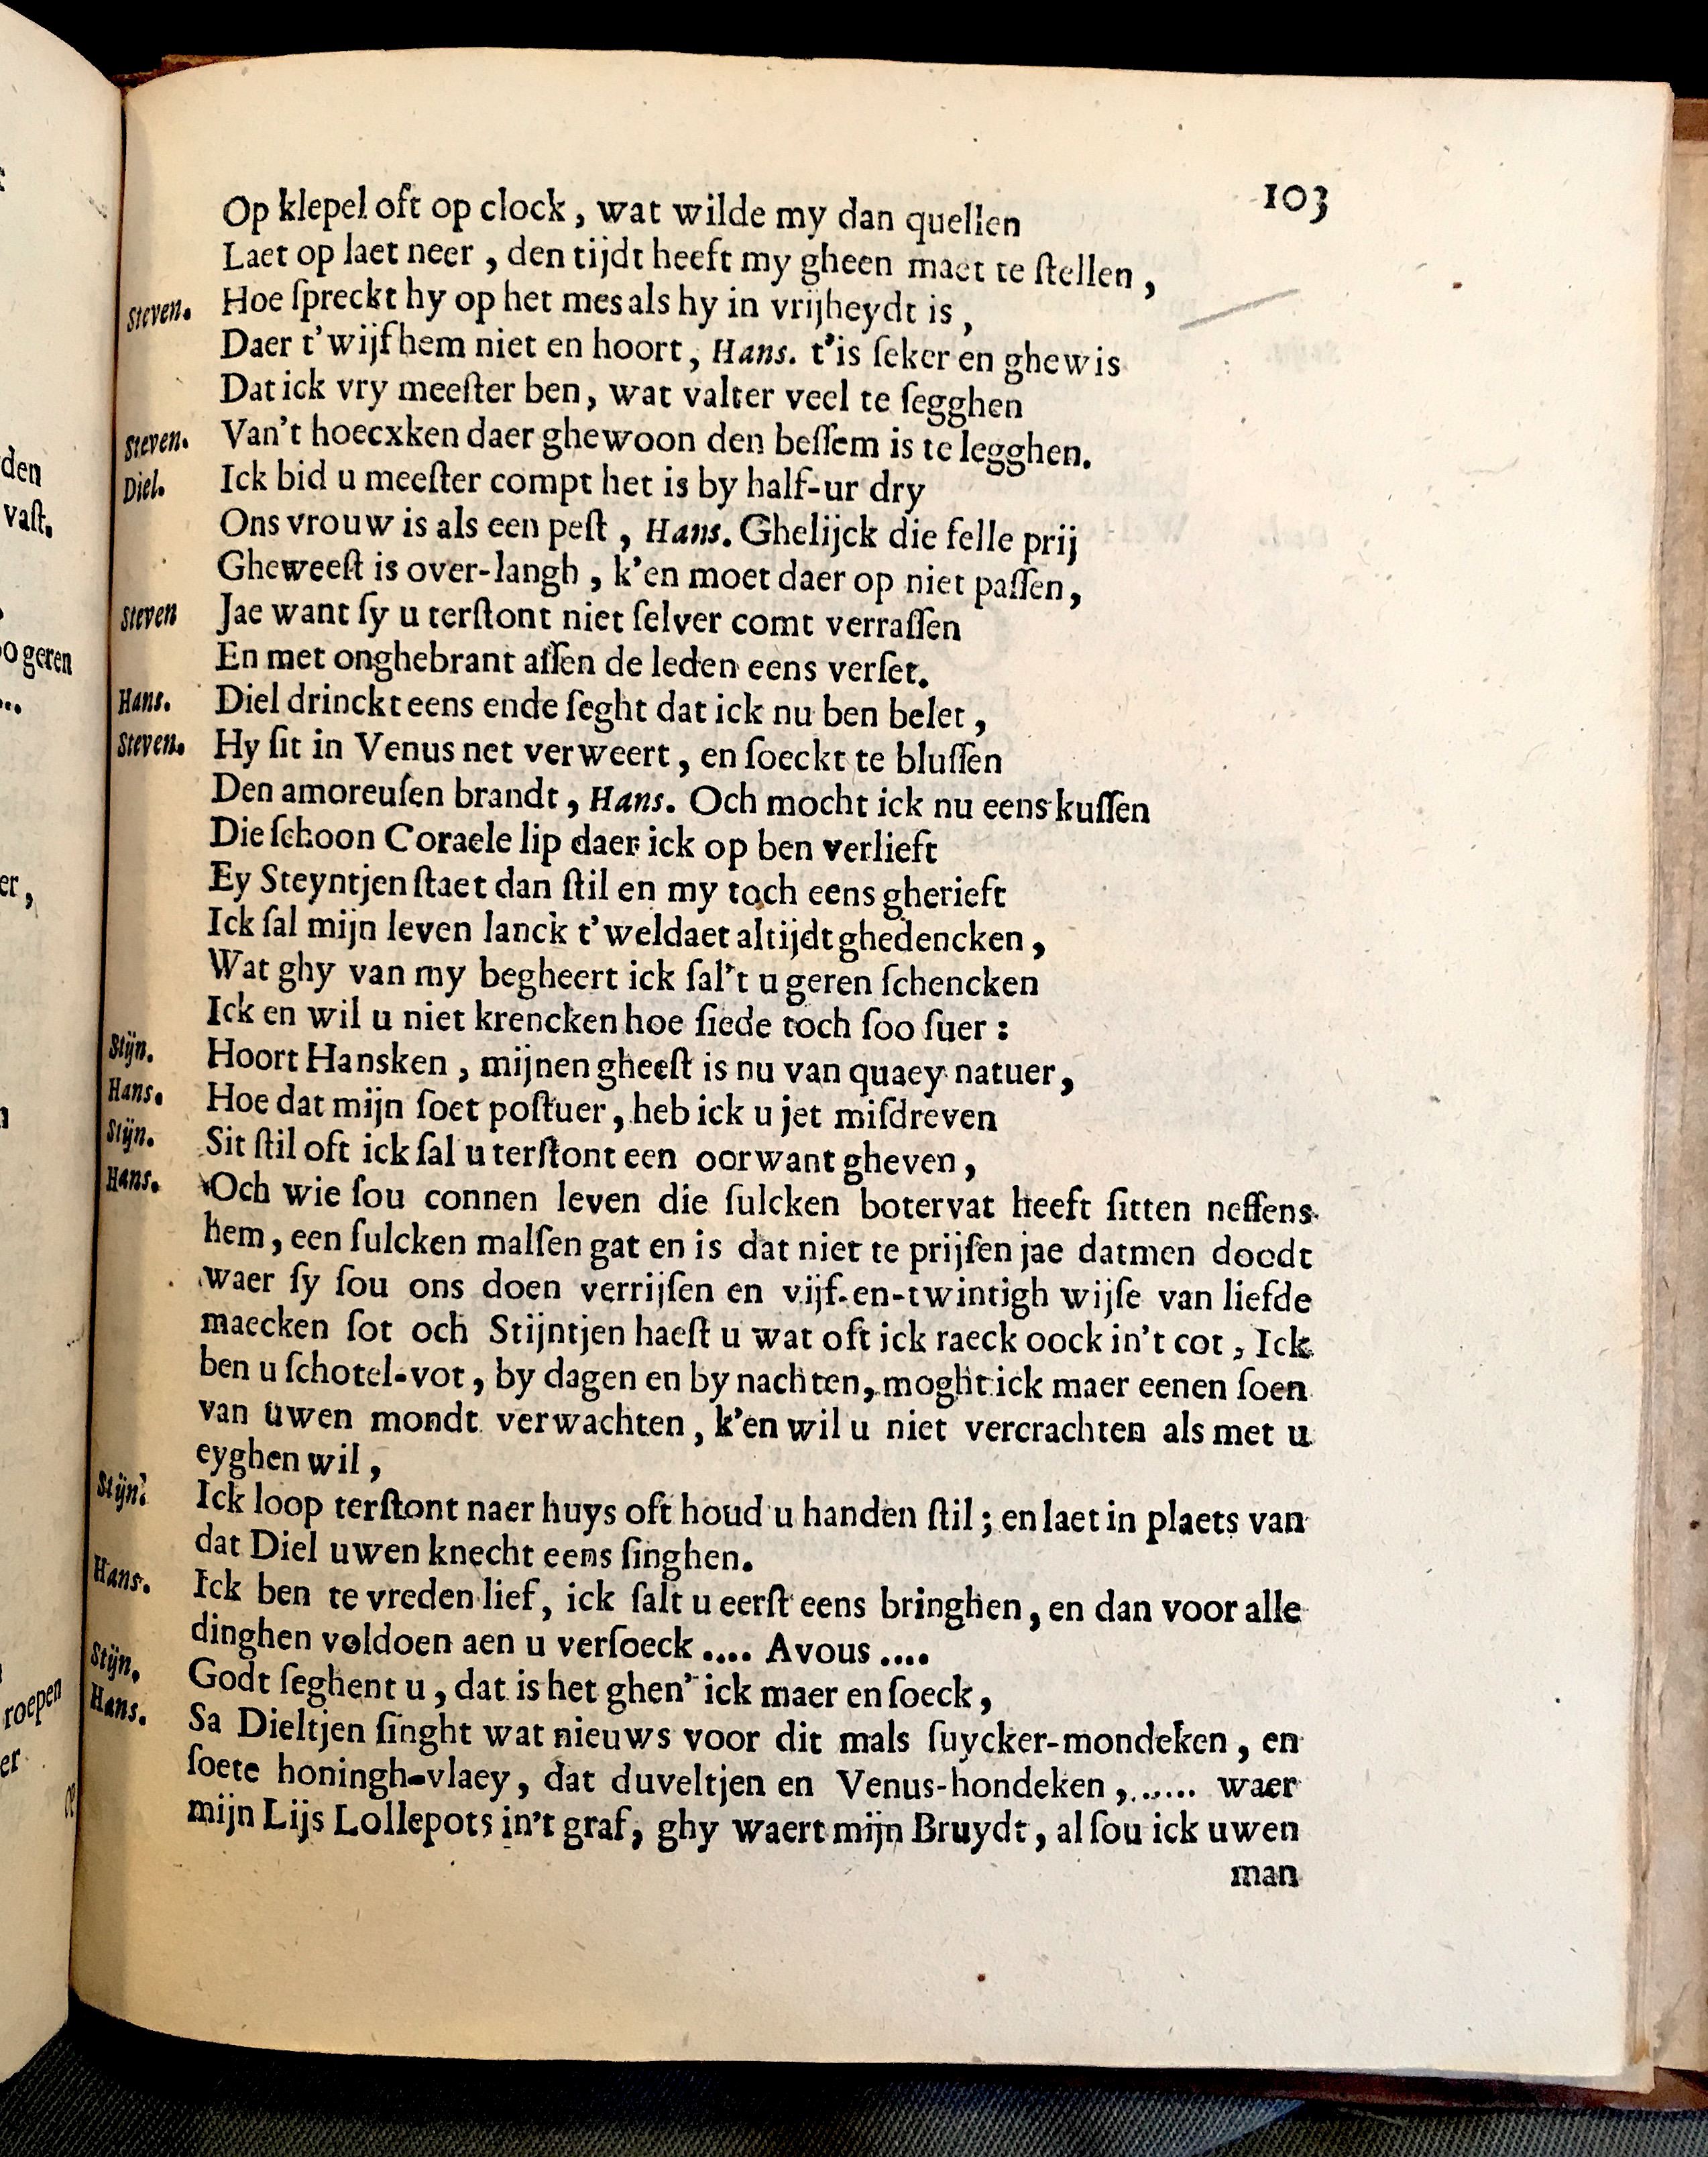 103
Op klepel oft op clock, wat wilde my dan quellen
Laet op laet neer, den tijdt heeft my gheen maet te ſtellen,
Steven. Hoe ſpreckt hy op het mes als hy in vrijheydt is,
Daer t'wijf hem niet en hoort, Hans. t'is ſeker en ghewis
Dat ick vry meeſter ben, wat valter veel te ſegghen
Steven. Van't hoecxken daer ghewoon den beſſem is te legghen.
Diel. Ick bid u meeſter compt het is by half-ur dry
Ons vrouw is als een peſt, Hans. Ghelijck die felle prij
Gheweeſt is over-langh, k'en moet daer op niet paſſen,
Steven Jae want ſy u terſtont niet ſelver comt verraſſen
En met onghebrant aſſen de leden eens verſet.
Hans. Diel drinckt eens ende ſeght dat ick nu ben belet,
Steven. Hy ſit in Venus net verweert, en ſoeckt te bluſſen
Den amoreuſen brandt, Hans. Och mocht ick nu eens kuſſen
Die ſchoon Coraele lip daer ick op ben verlieft
Ey Steyntjen ſtaet dan ſtil en my toch eens gherieft
Ick ſal mijn leven lanck t'weldaet altijdt ghedencken,
Wat ghy van my begheert ick ſal't u geren ſchencken
Ick en wil u niet krencken hoe ſiede toch ſoo ſuer:
Stijn. Hoort Hansken, mijnen gheeſt is nu van quaey natuer,
Hans. Hoe dat mijn ſoet poſtuer, heb ick u jet miſdreven
Stijn. Sit ſtil oft ick ſal u terſtont een oorwant gheven,
Hans. Och wie ſou connen leven die ſulcken botervat heeft ſitten neffens
hem, een ſulcken malſen gat en is dat niet te prijſen jae datmen doodt
waer ſy ſou ons doen verrijſen en vijf-en-twintigh wijſe van liefde
maecken ſot och Stijntjen haeſt u wat oft ick raeck oock in't cot, Ick
ben u ſchotel-vot, by dagen en by nachten, moght ick maer eenen ſoen
van uwen mondt verwachten, k'en wil u niet vercrachten als met u
eyghen wil,
Stijn. Ick loop terſtont naer huys oft houd u handen ſtil; en laet in plaets van
dat Diel uwen knecht eens ſinghen.
Hans. Ick ben te vreden lief, ick ſalt u eerſt eens bringhen, en dan voor alle
dinghen voldoen aen u verſoeck .... Avous ....
Stijn. Godt ſeghent u, dat is het ghen' ick maer en ſoeck,
Hans. Sa Dieltjen ſinght wat nieuws voor dit mals ſuycker-mondeken, en
ſoete honingh-vlaey, dat duveltjen en Venus-hondeken, ...... waer
mijn Lijs Lollepots in't graf, ghy waert mijn Bruydt, al ſou ick uwen
man